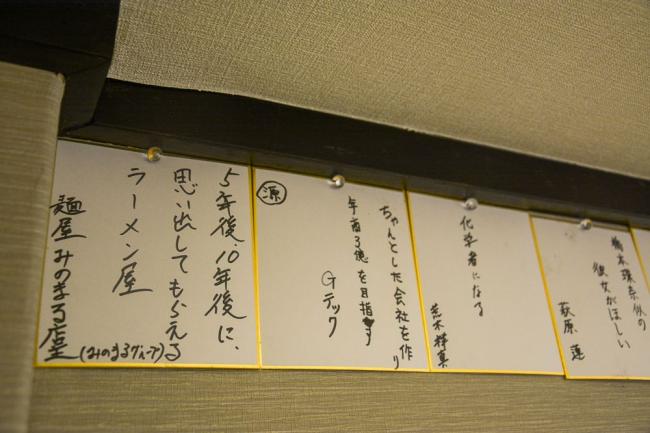 橋本環奈似の
彼女がほしい
萩原 蓮
化学者になる
荒木祥真
ちゃんとした会社を作り
年商3億を目指す
Gテック
源
5年後、10年後に、
思い出してもらえる
ラーメン屋
麺屋みのまる
(みのまるグループ)